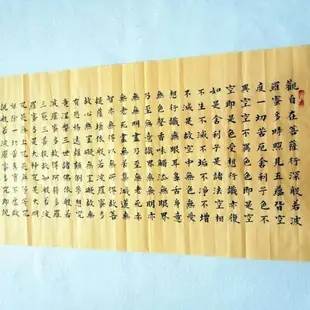 觀自在菩薩行深般若波
羅蜜多時照見五蘊皆空
度一切苦厄舍利子色不
異空空不異色色即是空
空即是色受想行識亦復
如是舍利子是諸法空相
不生不滅不垢不淨不增
不減是故空中無色無受
想行識無眼耳鼻舌身意
無色聲香味觸法無眼界
乃至無意識界無無明亦
無無明盡乃至無老死亦
無老死盡無苦集滅道無
智亦無得以無所得故菩
提薩埵依般若波羅蜜多
故心無罣礙無罣礙故無
有恐怖遠離顛倒夢想究
竟涅槃三世諸佛依般若
波羅蜜多故得阿耨多羅
三藐三菩提故知般若波
羅蜜多是大神咒是大明
咒是無上咒是無等等咒
能除一切苦真實不虛故
說般若波羅蜜多咒即說